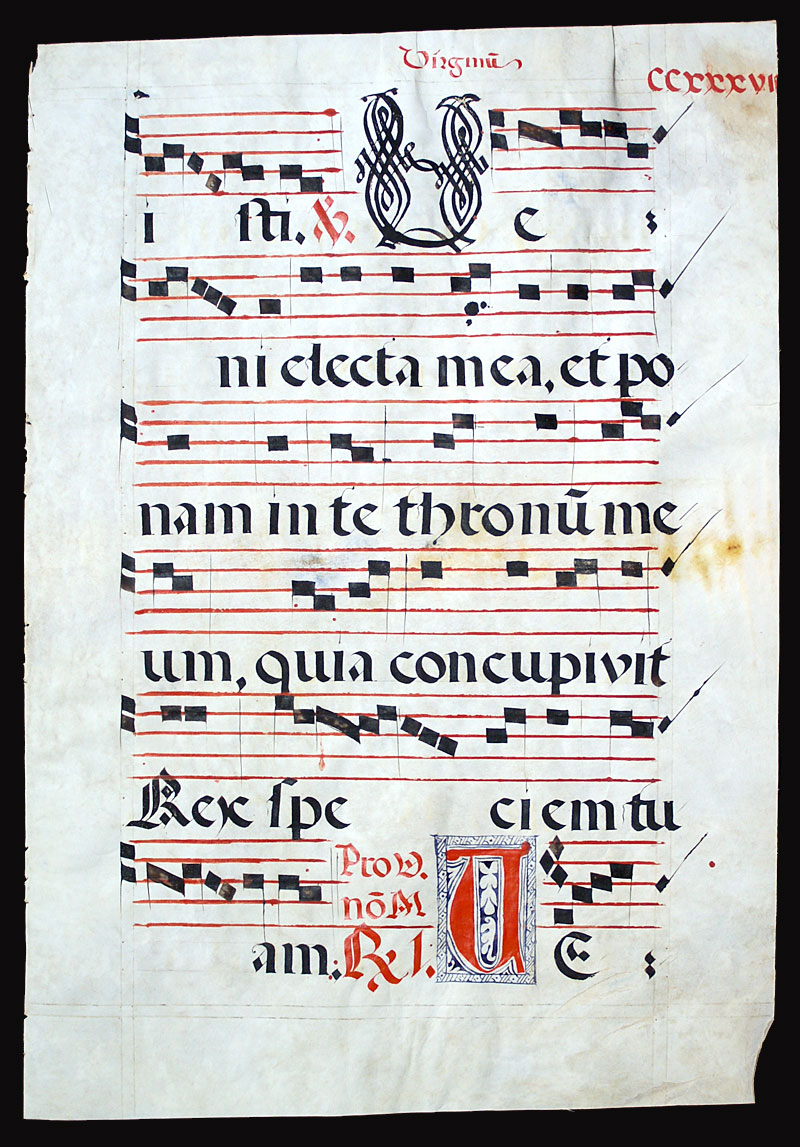 Virginũ
CCXXXVII
i sti. ℣. Ve :
ni electa mea, et po
nam in te thronũ me
um, quia concupivit
Rex spe ciem tu
am. Pro V. nõ M ℟ 1. VE :